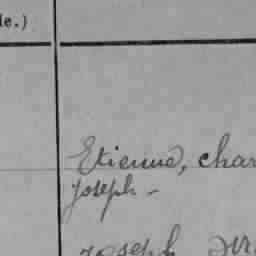 le.)
Etienne, char
Joseph -
Joseph